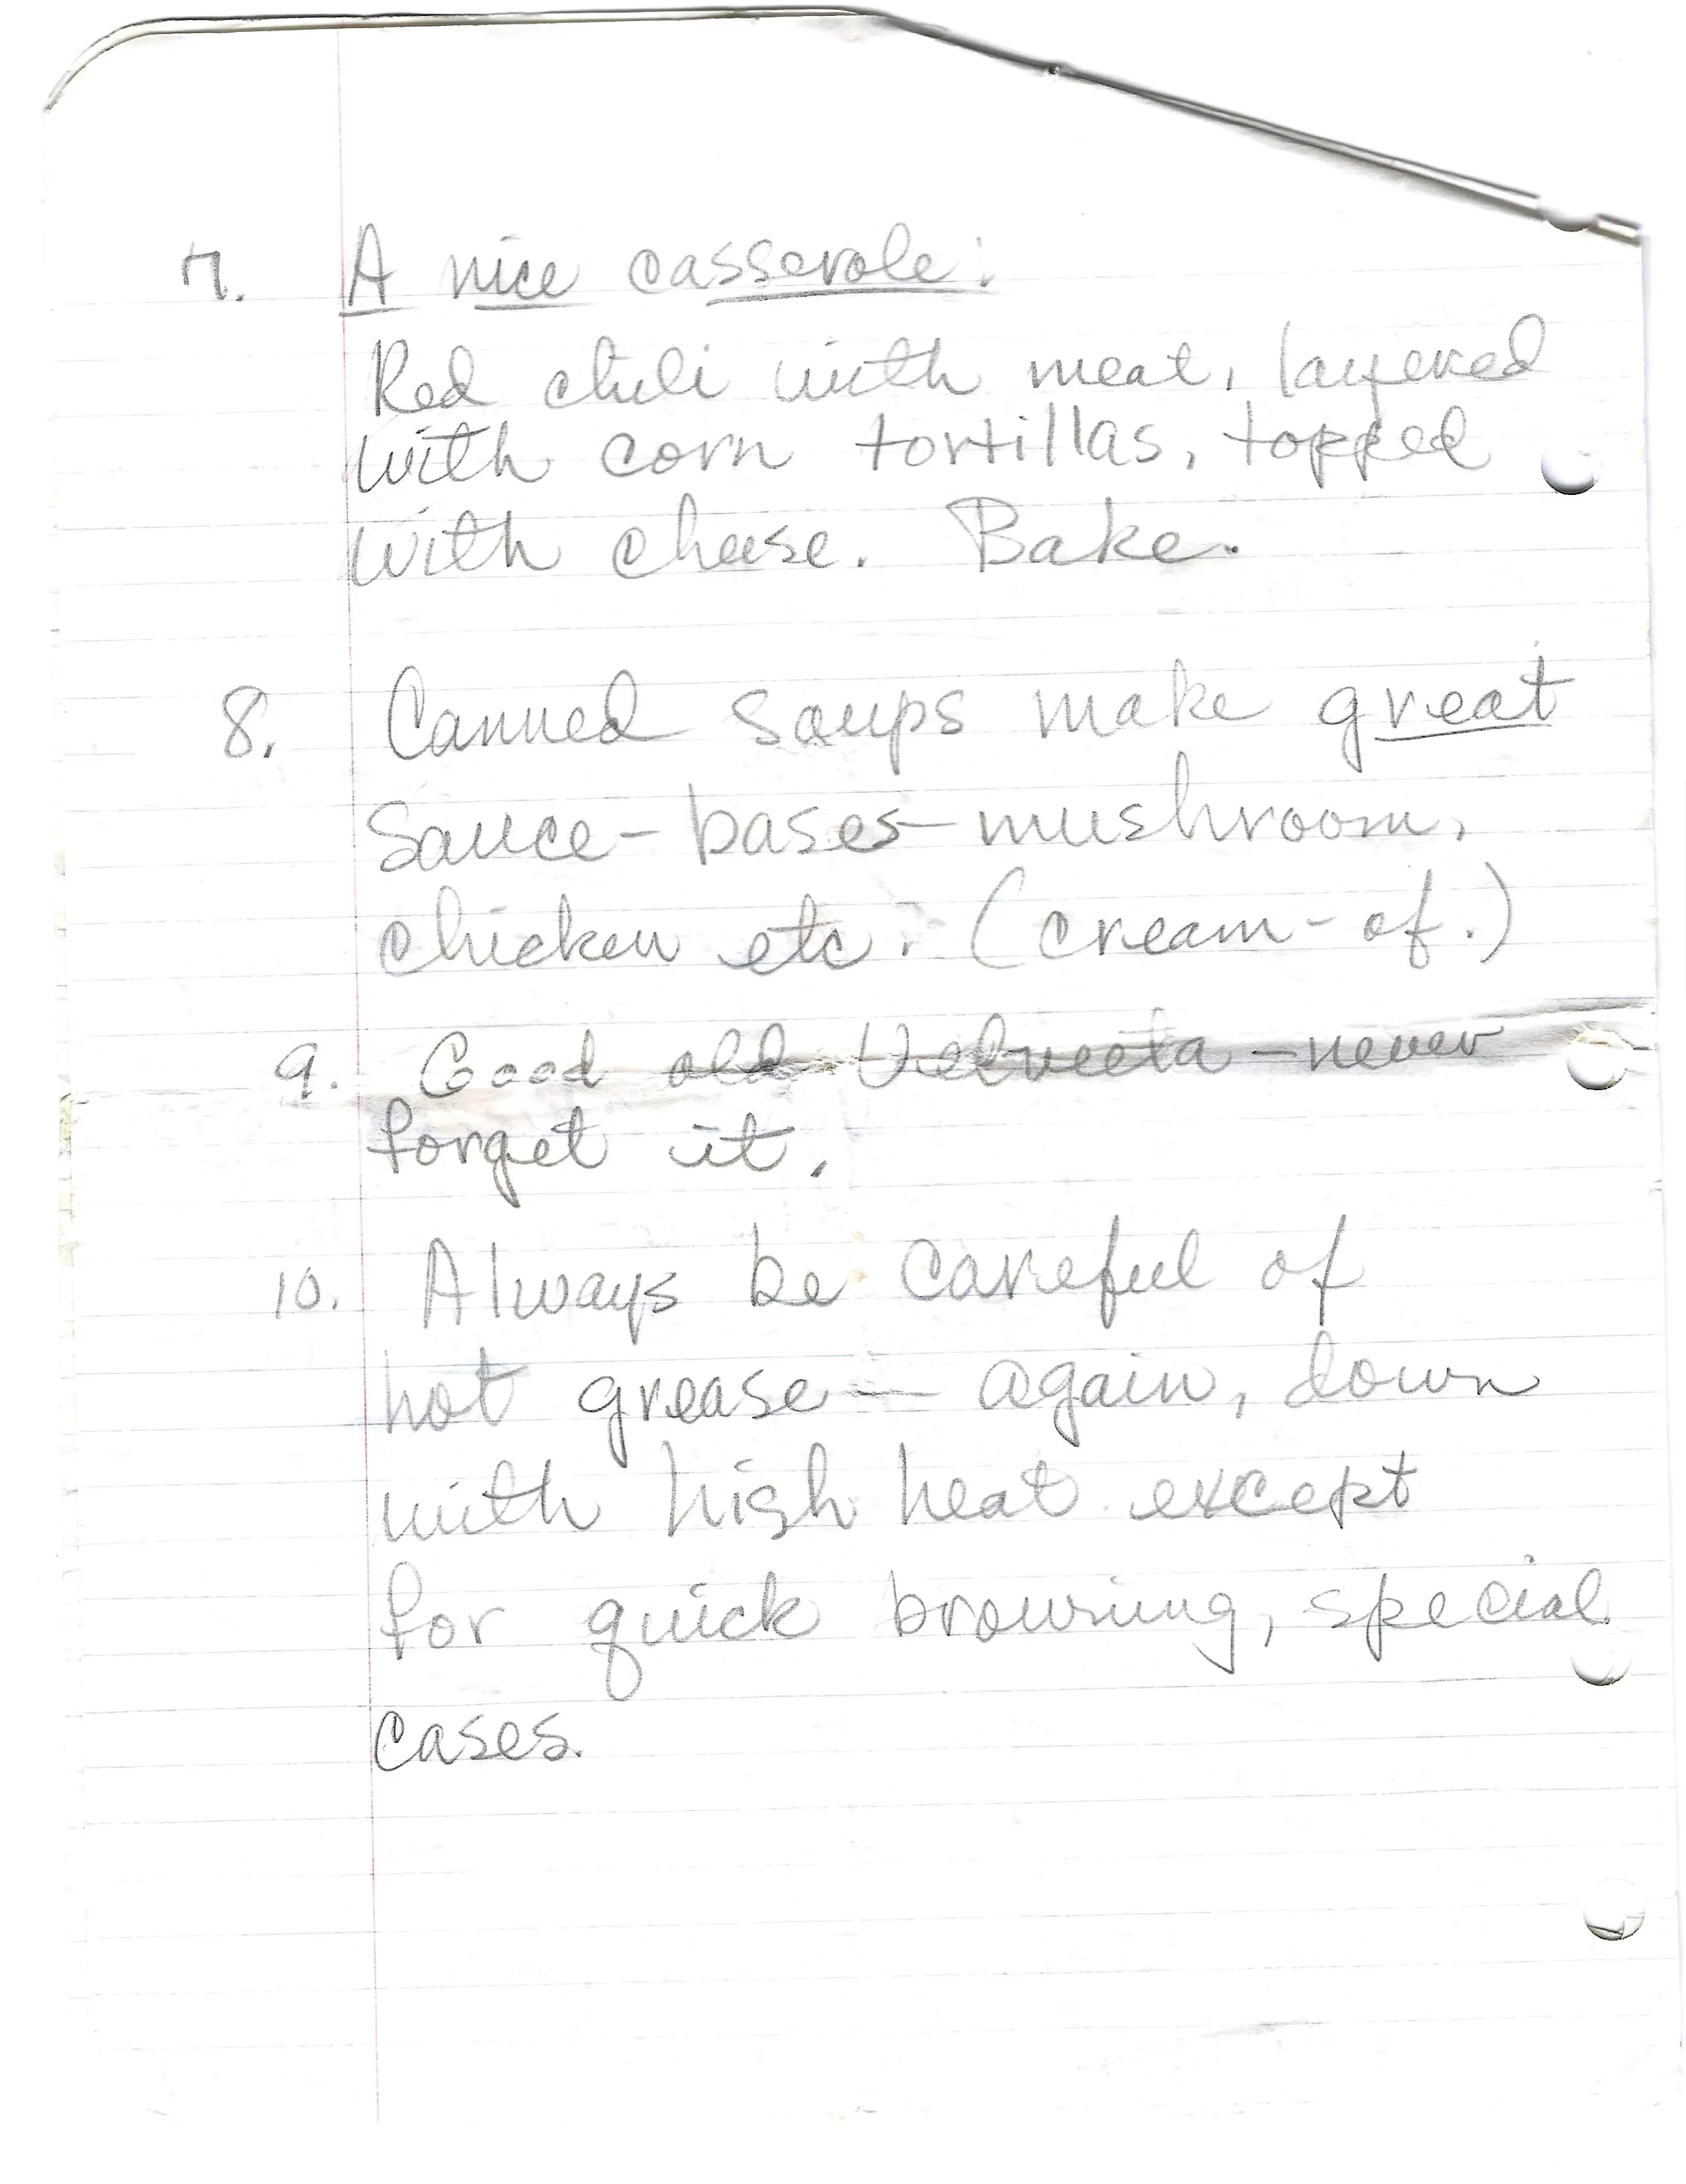 7. A nice casserole:
Red chili with meat, layered
with corn tortillas, topped
with cheese. Bake.
8. Canned soups make great
sauce-bases-mushroom,
chicken etc. (cream-of.)
9. Good old Velveeta-never
forget it.
10. Always be careful of
hot grease - again, down
with high heat except
for quick browning, special
cases.